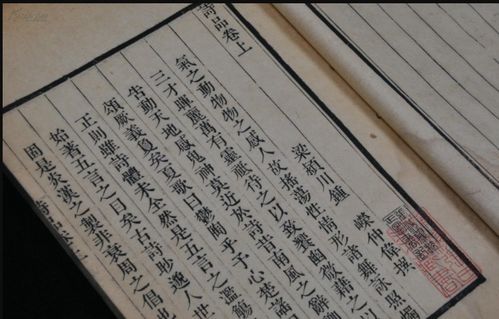 詩品卷上
梁潁川鍾 嶸仲偉撰
氣之動物物之感人故搖蕩性情形諸舞詠照燭
三才暉麗萬有靈祇待之以致饗幽微藉之以
告動天地感鬼神莫近於詩昔南風之辭
頌厥義敻矣夏歌曰鬱陶乎予心楚謠
正則雖詩體未全然是五言之濫觴
始著五言之目矣古詩眇邈人世
固是炎漢之製非衰周之倡也